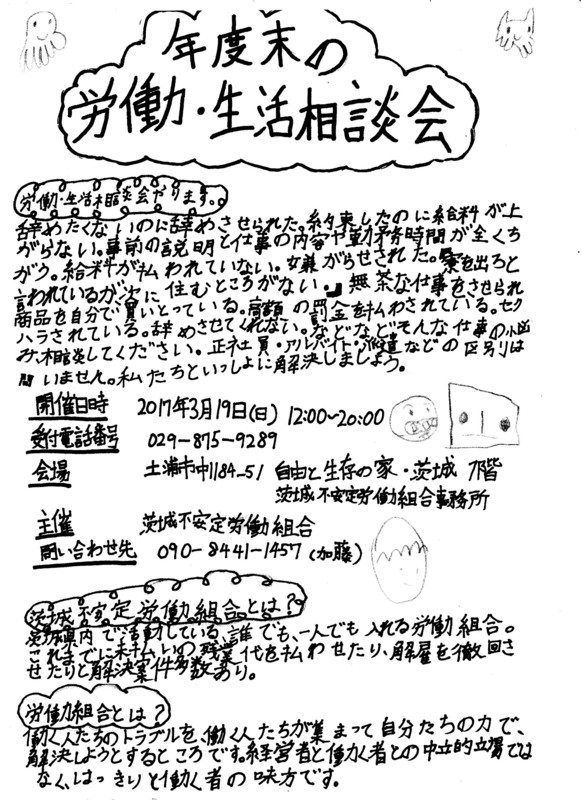 年度末の
労働・生活相談会
労働・生活相談会やります。
辞めたくないのに辞めさせられた。約束したのに給料が上
がらない。事前の説明と仕事の内容や勤務時間が全くち
がう。給料が払われていない。嫌がらせされた。寮を出ろと
言われているが次に住むところがない。無茶な仕事をさせられ
商品を自分で買いとっている。高額の罰金を払わされている。セク
ハラされている。辞めさせてくれない。などなどそんな仕事の悩
み、相談してください。正社員・アルバイト・派遣などの区別は
問いません。私たちといっしょに解決しましょう。
開催日時 2017年3月19日(日) 12:00〜20:00
受付電話番号 029-875-9289
会場 土浦市中1184-51 自由と生存の家・茨城 1階
茨城不安定労働組合事務所
主催 茨城不安定労働組合
問い合わせ先 090-8441-1457 (加藤)
茨城不安定労働組合とは?
茨城県内で活動している、誰でも、一人でも入れる労働組合。
これまでに未払いの残業代を払わせたり、解雇を撤回さ
せたりと解決案件多数あり。
労働組合とは?
働く人たちのトラブルを、働く人たちが集まって自分たちの力で、
解決しようとするところです。経営者と働く者との中立的立場では
なく、はっきりと働く者の味方です。